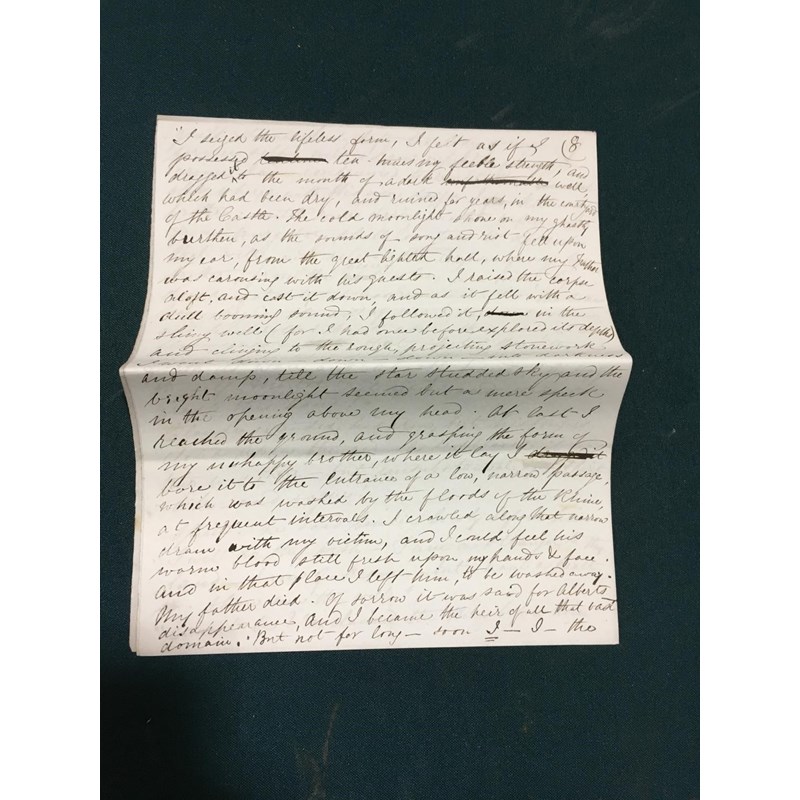 "I seized the lifeless form, I felt as if I (8
possessed ten times my feeble strength, and
dragged it to the mouth of a dark well,
which had been dry, and ruined for years, in the court yard
of the Castle. The cold moonlight shone on my ghastly
burthen, as the sounds of song and riot fell upon
my ear, from the great lighted hall, where my Father
was carousing with his guests. I raised the corpse
aloft, and cast it down, and as it fell with a
dull booming sound, I followed it, in the
slimy well (for I had once before explored its depths)
and clinging to the rough, projecting stonework
down, down into darkness
and damp, till the star studded sky and the
bright moonlight seemed but a mere speck
in the opening above my head. At last I
reached the ground, and grasping the form of
my unhappy brother, where it lay I dragged it
bore it to the entrance of a low, narrow passage,
which was washed by the floods of the Rhine,
at frequent intervals. I crawled along that narrow
drain with my victim, and I could feel his
warm blood still fresh upon my hands & face.
And in that place I left him, to be washed away.
My father died. Of sorrow it was said for Alberts
disappearance, and I became the heir of all that vast
domain. But not for long — soon I — I — the